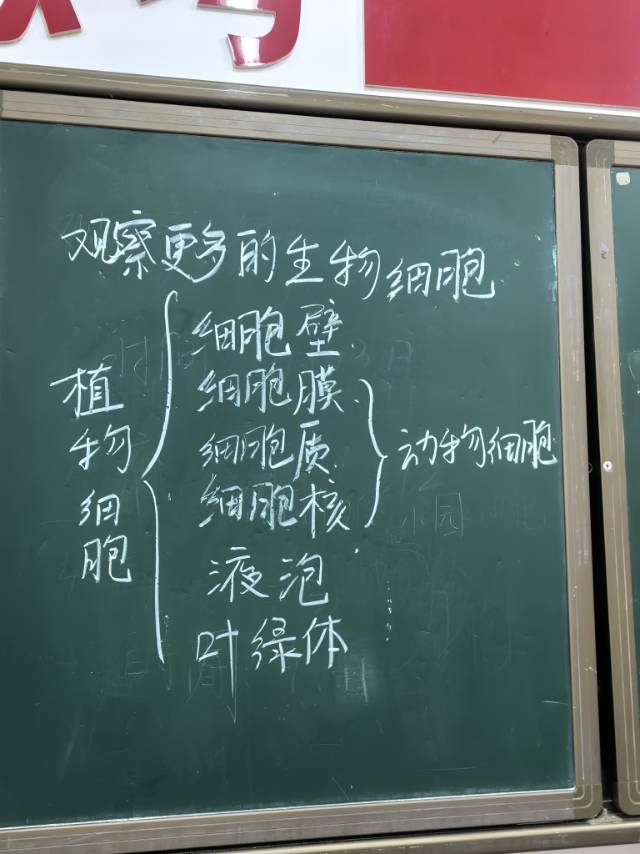 观察更多的生物细胞
植物细胞
细胞壁
细胞膜
细胞质
细胞核
液泡
叶绿体
动物细胞